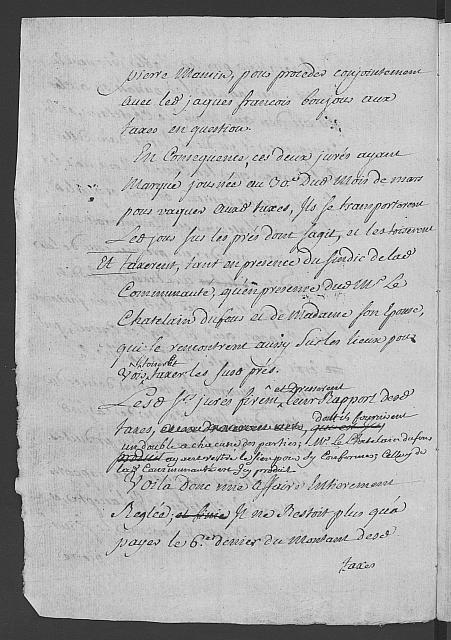 pierre Mousin, pour proceder conjointement
avec led. jaques francois boujous aux
taxes en question.
En Consequence, ces deux jurés ayant
Marqué journée au 30.e dud. Mois de mars
pour vaquer auxd. taxes, Ils se transporterent
Led. jour sur les prés dont s'agit, et les toiserent
Et taxerent, tant en presence du sindic de lad.
Communauté, qu'en presence dud. Mr. Le
Chatelain dufour et de Madame son Epouse,
qui se rencontrerent aussy sur les lieux pour
Voir, toiser et taxer les susd. prés.
Lesd. Srs. jurés firent et dresserent leur Rapport desd.
taxes, dont ils fournirent
un double a chacune des parties; Mr. Le Chatelain dufour
ayant retiré le sien pour s'y conformer, Celluy de
lad. Communauté est Icy produit
Voila donc une affaire Entierement
Reglée, et finie Il ne Restoit plus qu'a
payer le 6.er denier du Montant desd.
taxes